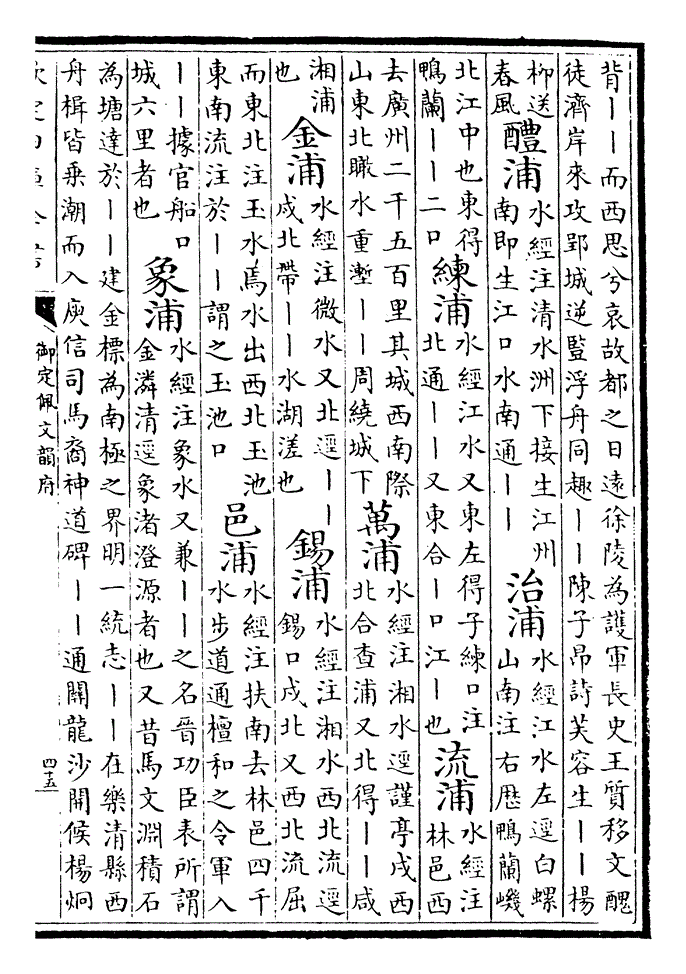 背——而西思兮哀故都之日遠徐陵為護軍長史王質移文醜
徒濟岸來攻郢城逆監浮舟同趣——陳子昂詩芙容生——楊
柳送
春風
醴浦
水經注清水洲下接生江州
南即生江口水南通——
治浦
水經江水左逕白螺
山南注右歷鴨蘭磯
北江中也東得
鴨蘭——二口
練浦
水經江水又東左得子練口注
北通——又東合——口江——也
流浦
水經注
林邑西
去廣州二千五百里其城西南際
山東北瞰水重塹——周繞城下
萬浦
水經注湘水逕謹亭戍西
北合查浦又北得——咸
湘浦
也
金浦
水經注微水又北逕——
戍北帶——水湖溠也
錫浦
水經注湘水西北流逕
錫口戍北又西北流屈
而東北注玉水焉水出西北玉池
東南流注於——謂之玉池口
邑浦
水經注扶南去林邑四千
水步道通檀和之令軍入
——據官船口
城六里者也
象浦
水經注象水又兼——之名晉功臣表所謂
金潾清逕象渚澄源者也又昔馬文淵積石
為塘達於——建金標為南極之界明一統志——在樂清縣西
舟楫皆乗潮而入庾信司馬裔神道碑——通關龍沙開候楊炯
御定佩文韻府
四十五